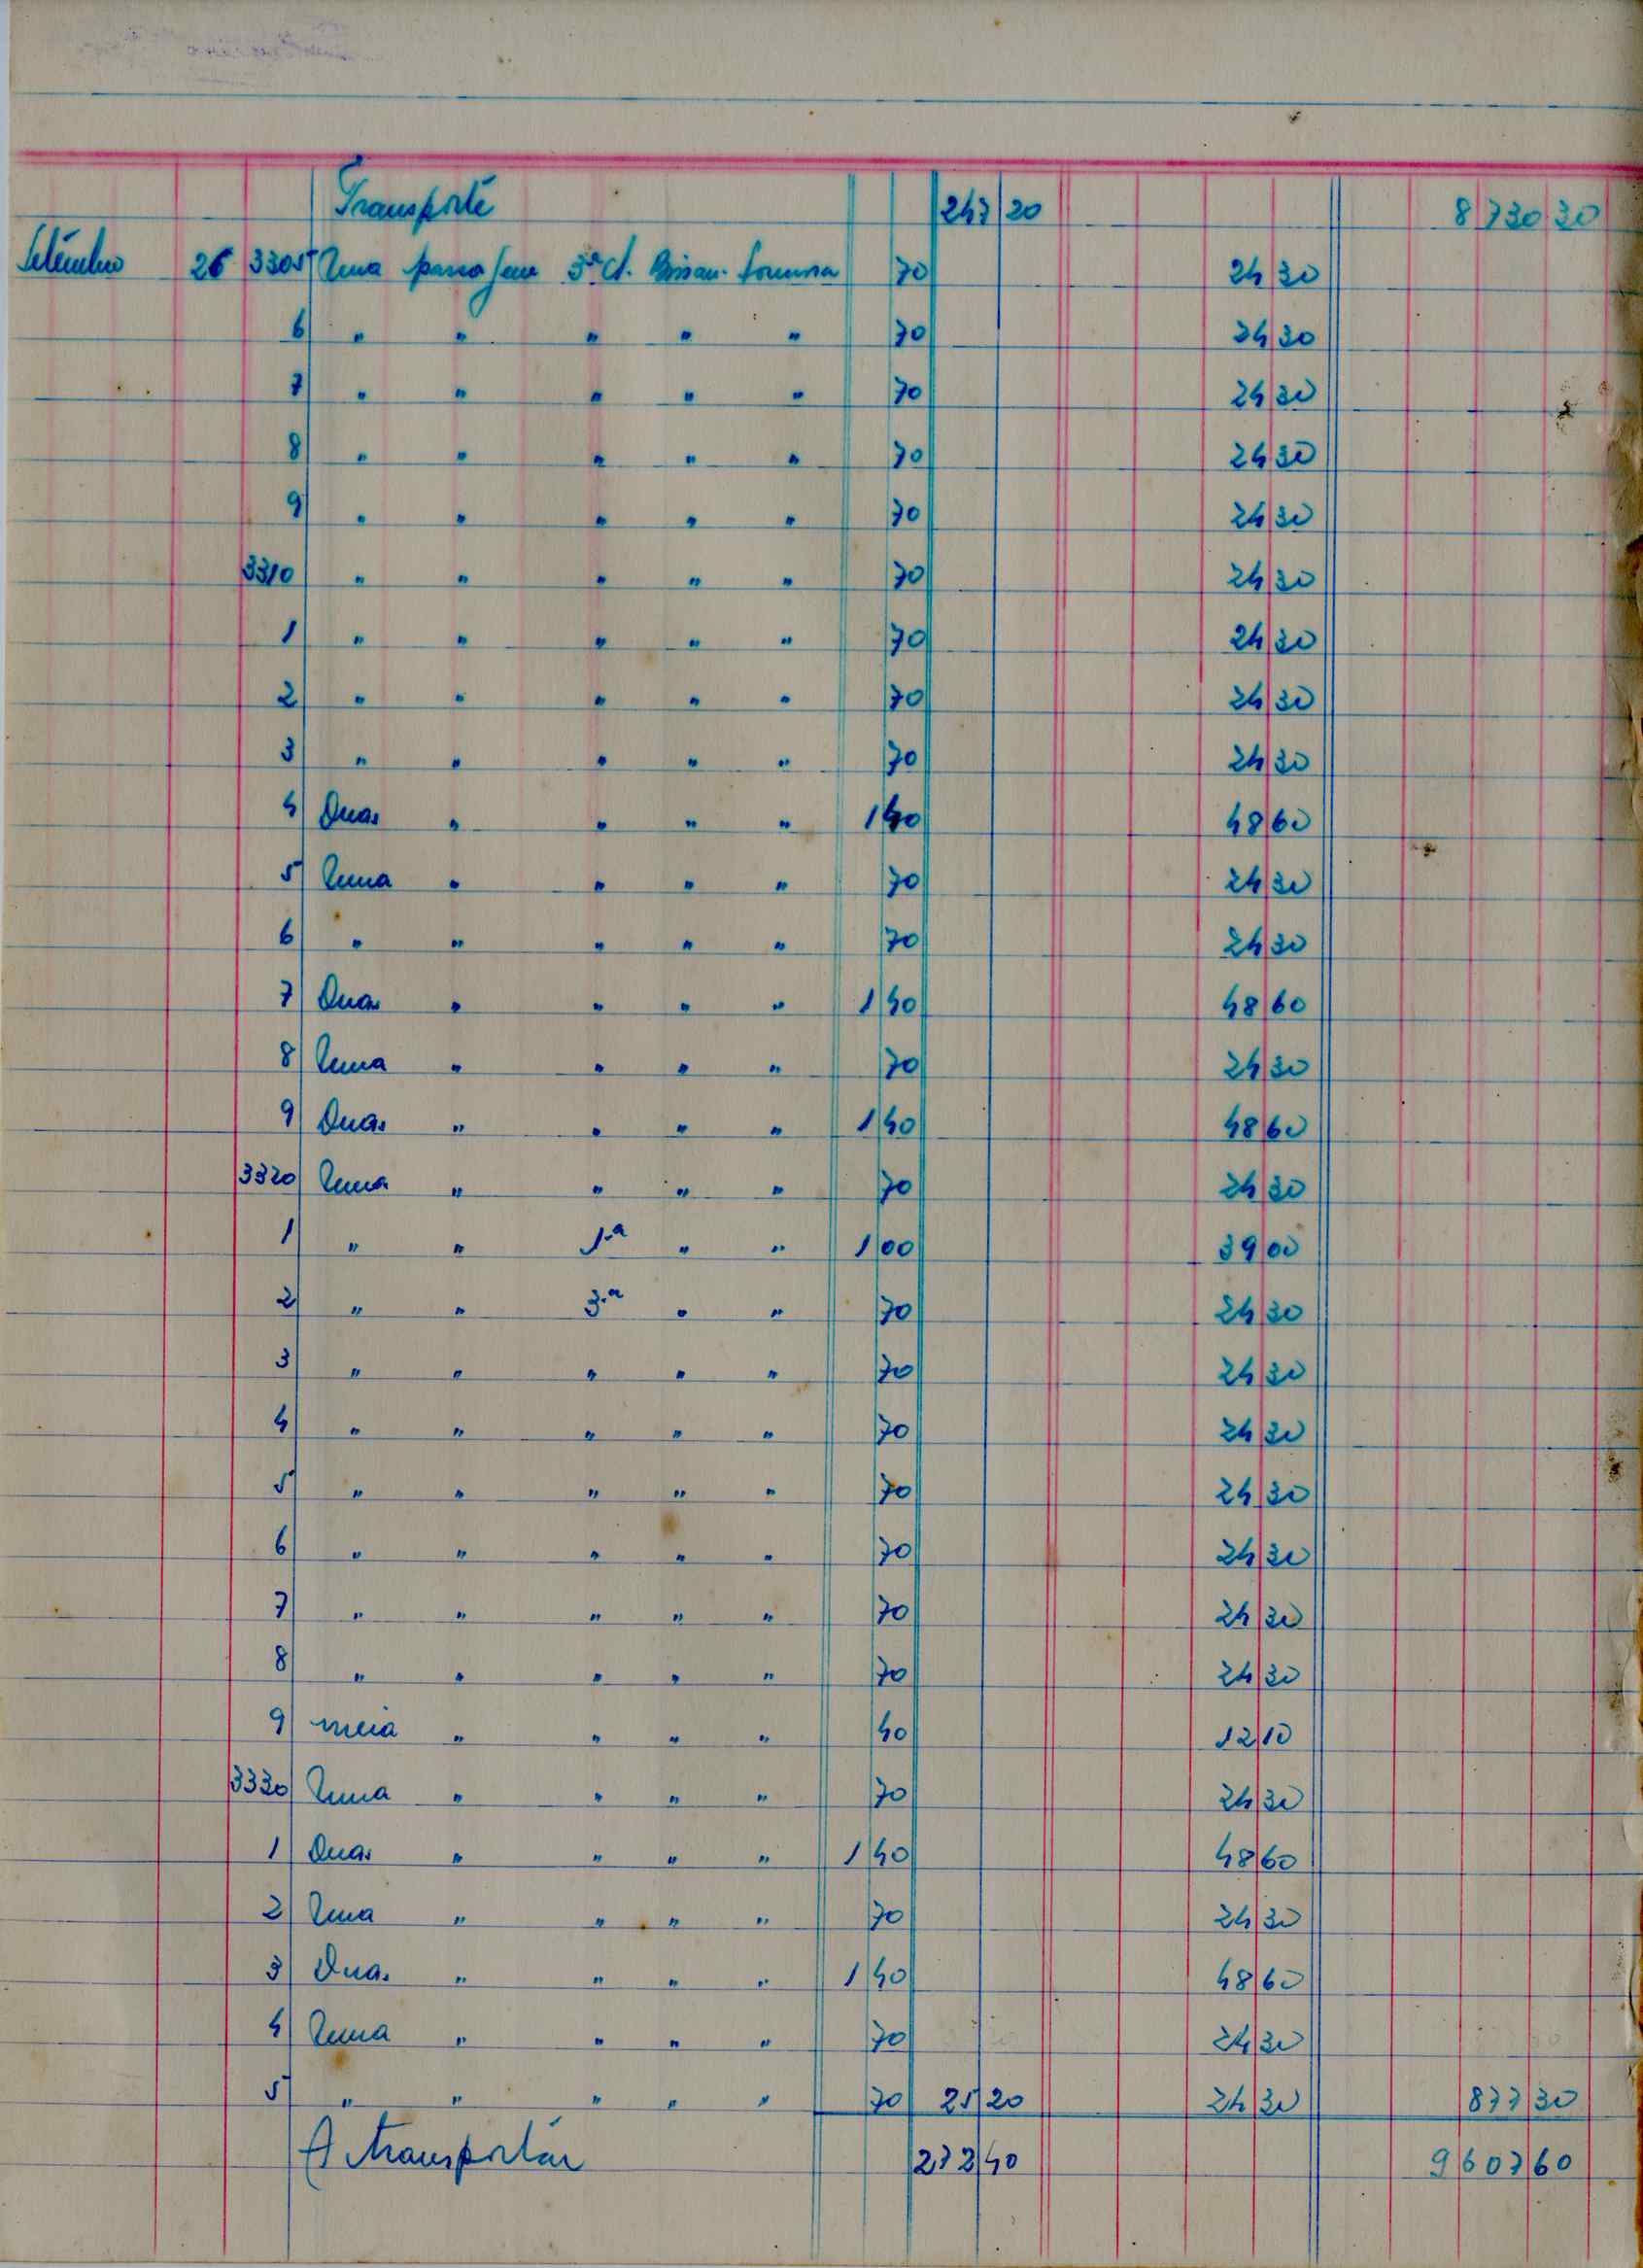 Transporte 247 20 8 730 30
Setembro 26 3305 Uma passagem 3.ª cl. Bissau- 70 24 30
6 " " " " " 70 24 30
7 " " " " " 70 24 30
8 " " " " " 70 24 30
9 " " " " " 70 24 30
3310 " " " " " 70 24 30
1 " " " " " 70 24 30
2 " " " " " 70 24 30
3 " " " " " 70 24 30
4 Duas " " " " 1 40 48 60
5 Uma " " " " 70 24 30
6 " " " " " 70 24 30
7 Duas " " " " 1 40 48 60
8 Uma " " " " 70 24 30
9 Duas " " " " 1 40 48 60
3320 Uma " " " " 70 24 30
1 " " 1.ª " " 1 00 39 00
2 " " 3.ª " " 70 24 30
3 " " " " " 70 24 30
4 " " " " " 70 24 30
5 " " " " " 70 24 30
6 " " " " " 70 24 30
7 " " " " " 70 24 30
8 " " " " " 70 24 30
9 meia " " " " 40 12 10
3330 Uma " " " " 70 24 30
1 Duas " " " " 1 40 48 60
2 Uma " " " " 70 24 30
3 Duas " " " " 1 40 48 60
4 Uma " " " " 70 24 30
5 " " " " " 70 25 20 24 30 877 30
A transportar 272 40 9 607 60